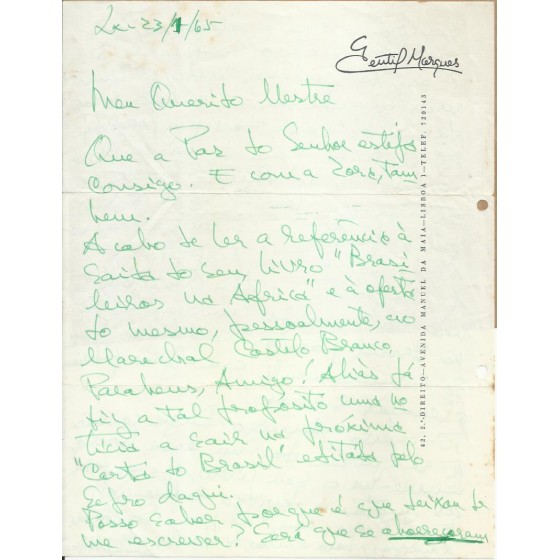 Lx - 23/1/65
Gentil Marques
Meu Querido Mestre
Que a Paz do Senhor esteja
consigo. E com a Zora, tam-
bém.
Acabo de ler a referência à
saída do seu livro "Brasi
leiros na Africa" e à oferta
do mesmo, pessoalmente, ao
Marechal Castelo Branco.
Parabens, Amigo! Aliás já
fiz a tal propósito uma no
tícia a sair na próxima
"Carta do Brasil" editada pelo
daqui.
Posso saber porque é que deixou de
me escrever? Será que se aborreceram
42, 2.º DIREITO—AVENIDA MANUEL DA MAIA—LISBOA 1—TELEF. 720143